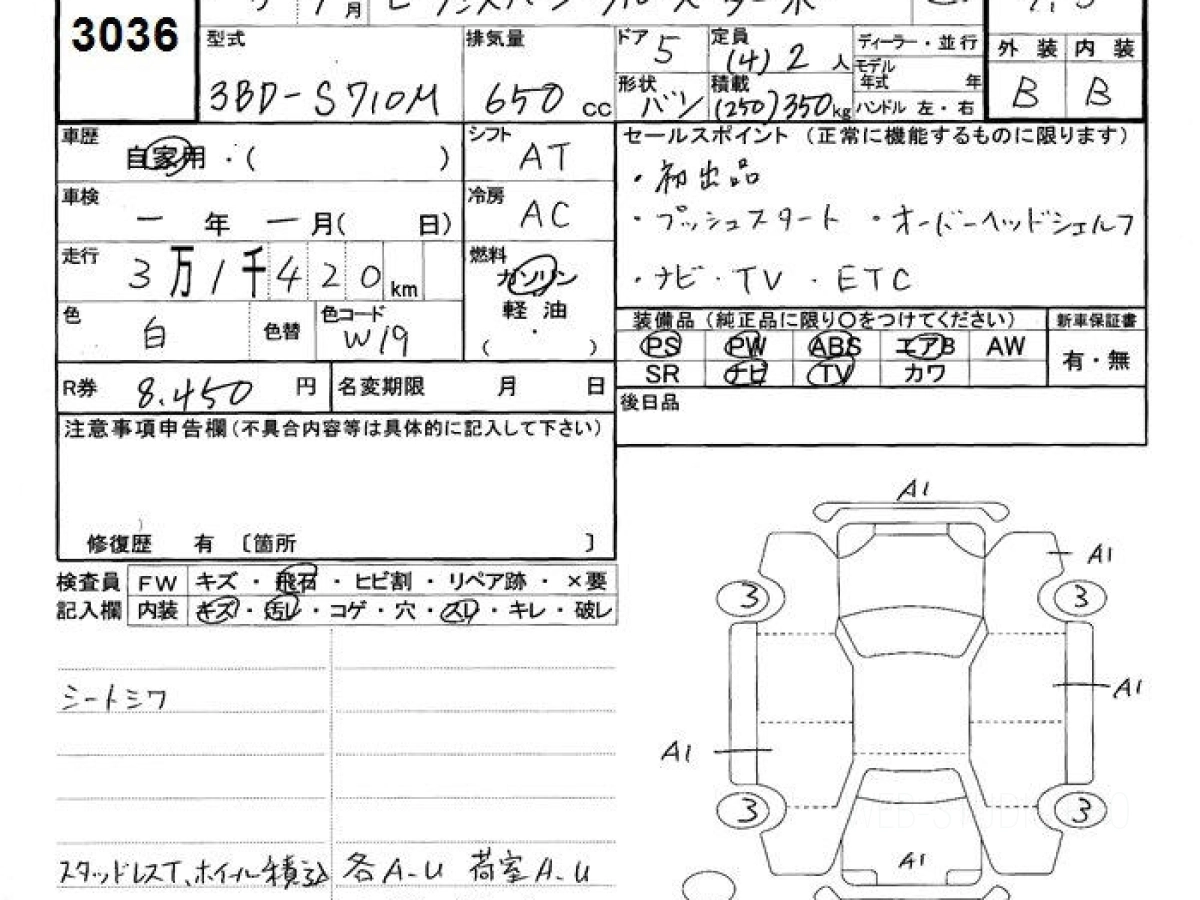 3036
月
型式 3BD-S710M
排気量 650 cc
ドア 5
定員 (4) 2 人
形状 バン
積載 (250) 350 kg
ディーラー・並行
モデル年式 年
ハンドル 左・右
外装 内装
B B
車歴 自家用・( )
シフト AT
車検 - 年 - 月( 日)
冷房 AC
走行 3万1千420 km
燃料 ガソリン
軽油
・
( )
色 白 色替 色コード W19
R券 8.450 円 名変期限 月 日
セールスポイント (正常に機能するものに限ります)
・初出品
・プッシュスタート ・オーバーヘッドシェルフ
・ナビ・TV ・ETC
装備品 (純正品に限り〇をつけてください) 新車保証書
PS PW ABS エアB AW 有・無
SR ナビ TV カワ
後日品
注意事項申告欄(不具合内容等は具体的に記入して下さい)
修復歴 有 〔箇所 〕
検査員 FW キズ・飛石・ヒビ割・リペア跡・×要
記入欄 内装 キズ・汚レ・コゲ・穴・スレ・キレ・破レ
シートシワ
スタッドレスT、ホイール積込 各A-U 荷室A-U
A1
A1
3 3
A1
A1
3 3
A1